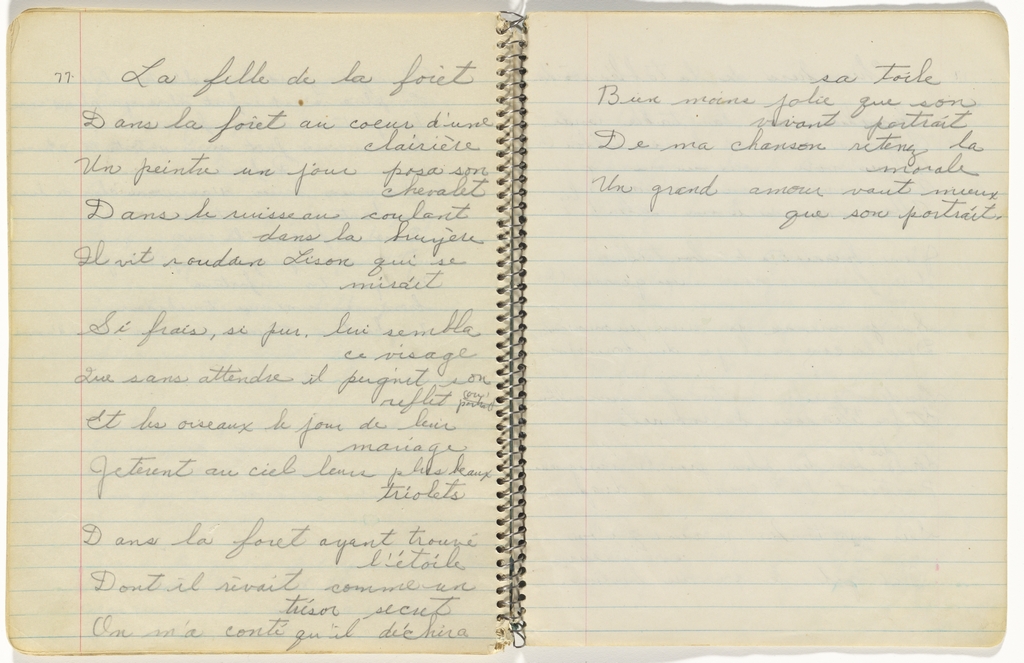 77. La fille de la forêt
Dans la forêt au coeur d'une
clairière
Un peintre un jour posa son
chevalet
Dans le ruisseau coulant
dans la bruyère
Il vit soudain Lison qui se
mirait
Si frais, si pur, lui sembla
ce visage
Que sans attendre il peignit son
reflet
Et les oiseaux le jour de leur
mariage
Jetèrent au ciel leurs plus beaux
triolets
Dans la foret ayant trouvé
l'étoile
Dont il rêvait comme un
trésor secret
On m'a conté qu'il déchira
sa toile
Bien moins jolie que son
vivant portrait
De ma chanson retenez la
morale
Un grand amour vaut mieux
que son portrait.